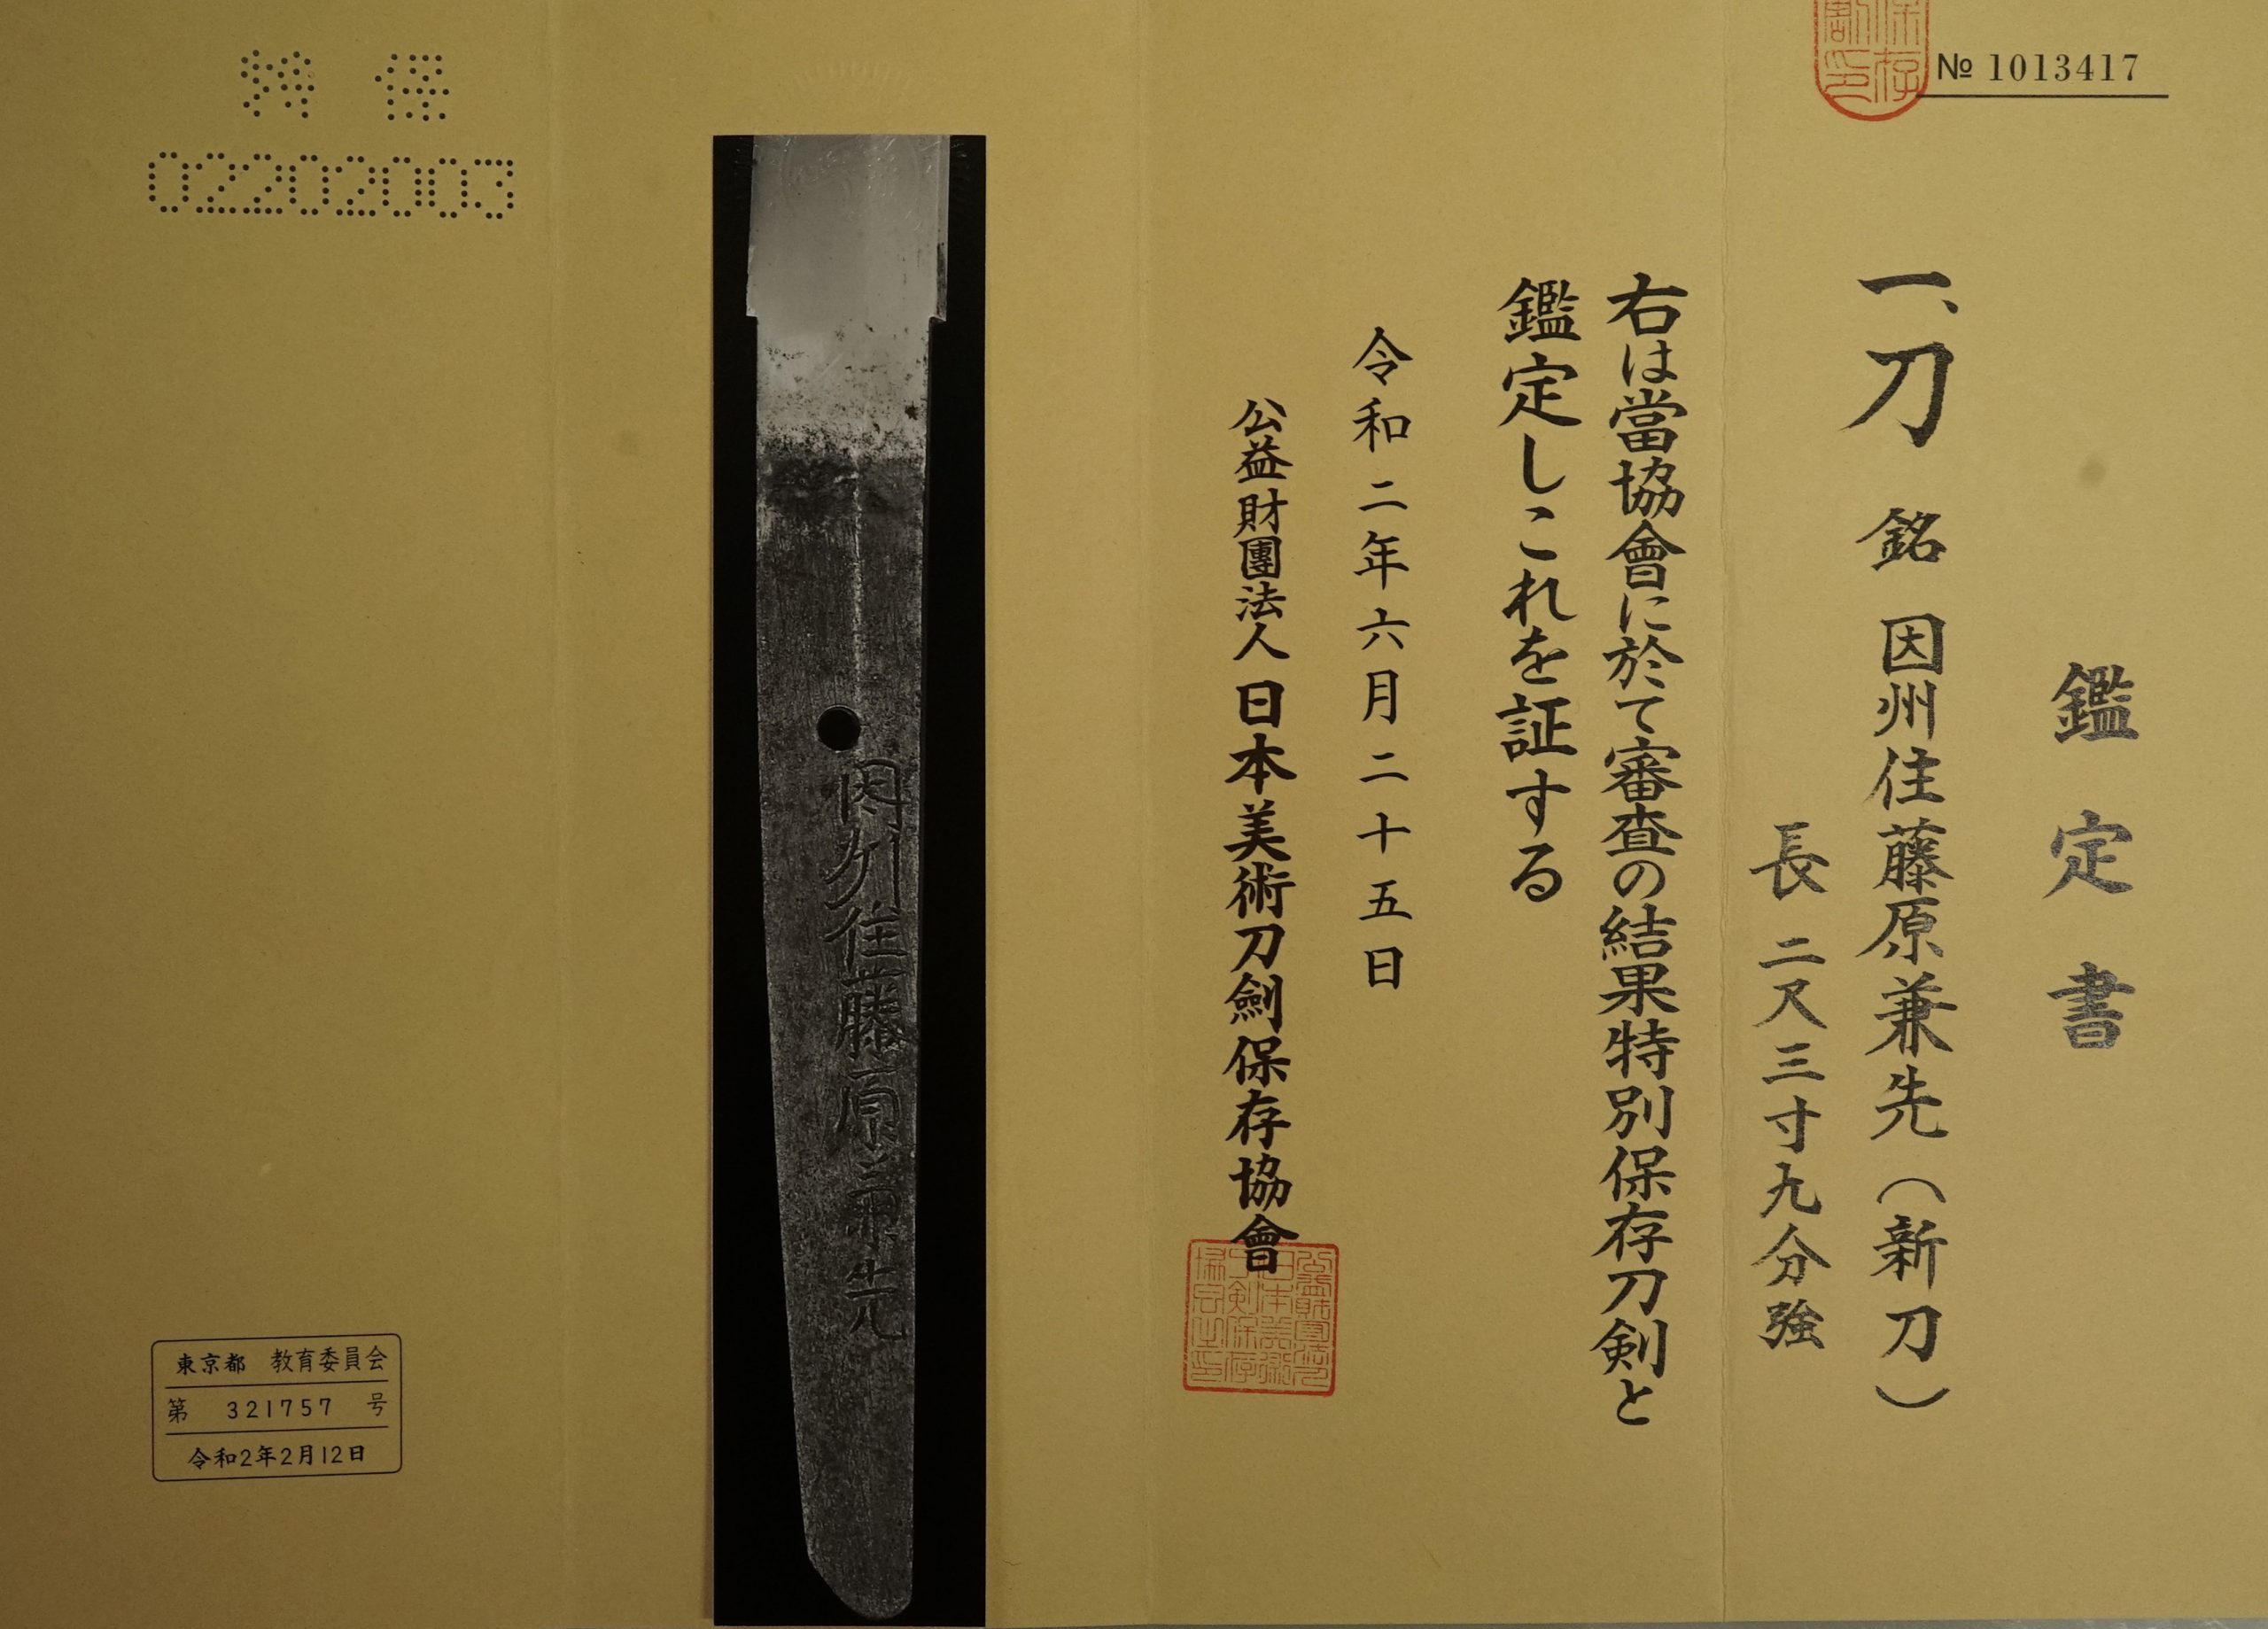 № 1013417
鑑定書
一、刀 銘 因州住藤原兼先(新刀)
長 二尺三寸九分強
右は當協會に於て審査の結果特別保存刀剣と
鑑定しこれを証する
令和二年六月二十五日
公益財團法人 日本美術刀劍保存協會
因州住藤原兼先
特保
02202003
東京都 教育委員会
第 321757 号
令和2年2月12日